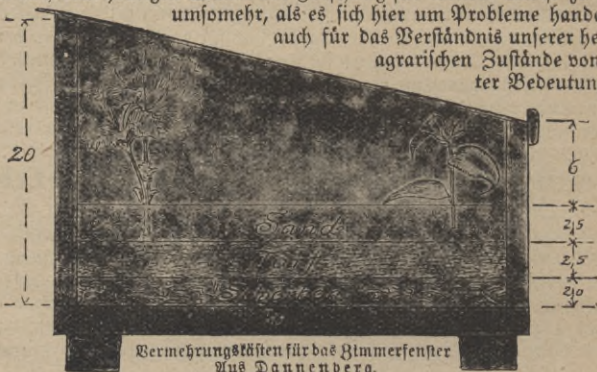 umsomehr, als es sich hier um Probleme hande
auch für das Verständnis unserer he
agrarischen Zustände von
ter Bedeutun
20
6
Sand
2,5
Torf
2,5
Scherben
2,0
Vermehrungskästen für das Zimmerfenster
Aus Dannenberg.